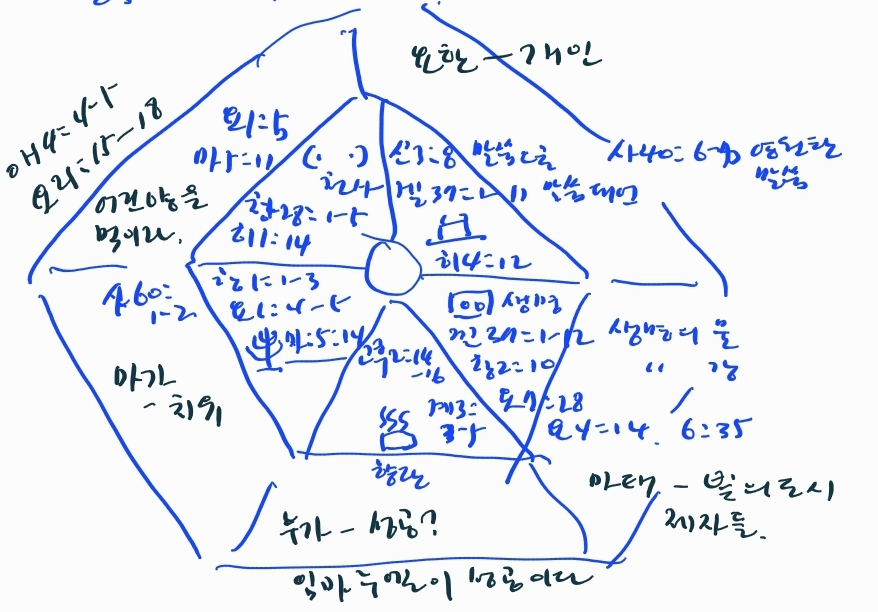 요한 - 개인
요1:5
마5:11
신7:8 말씀
겔37=1-11 말씀대언
사40:6-8 영원한
말씀
요21:15-18
어린양을
먹이라.
창28=1-5
히1:14
히4=12
창1=1-3
요1:4-5
마:5:14
사60:
1-2
생명
창2=10
요7=28
요4=14. 6:35
생명의 물
" 강
마가
- 치유
고후2=14
-16
계8:
3-5
향단
누가 - 성공?
마태 - 빛의 도시
제자들.
임마누엘이 성공이다